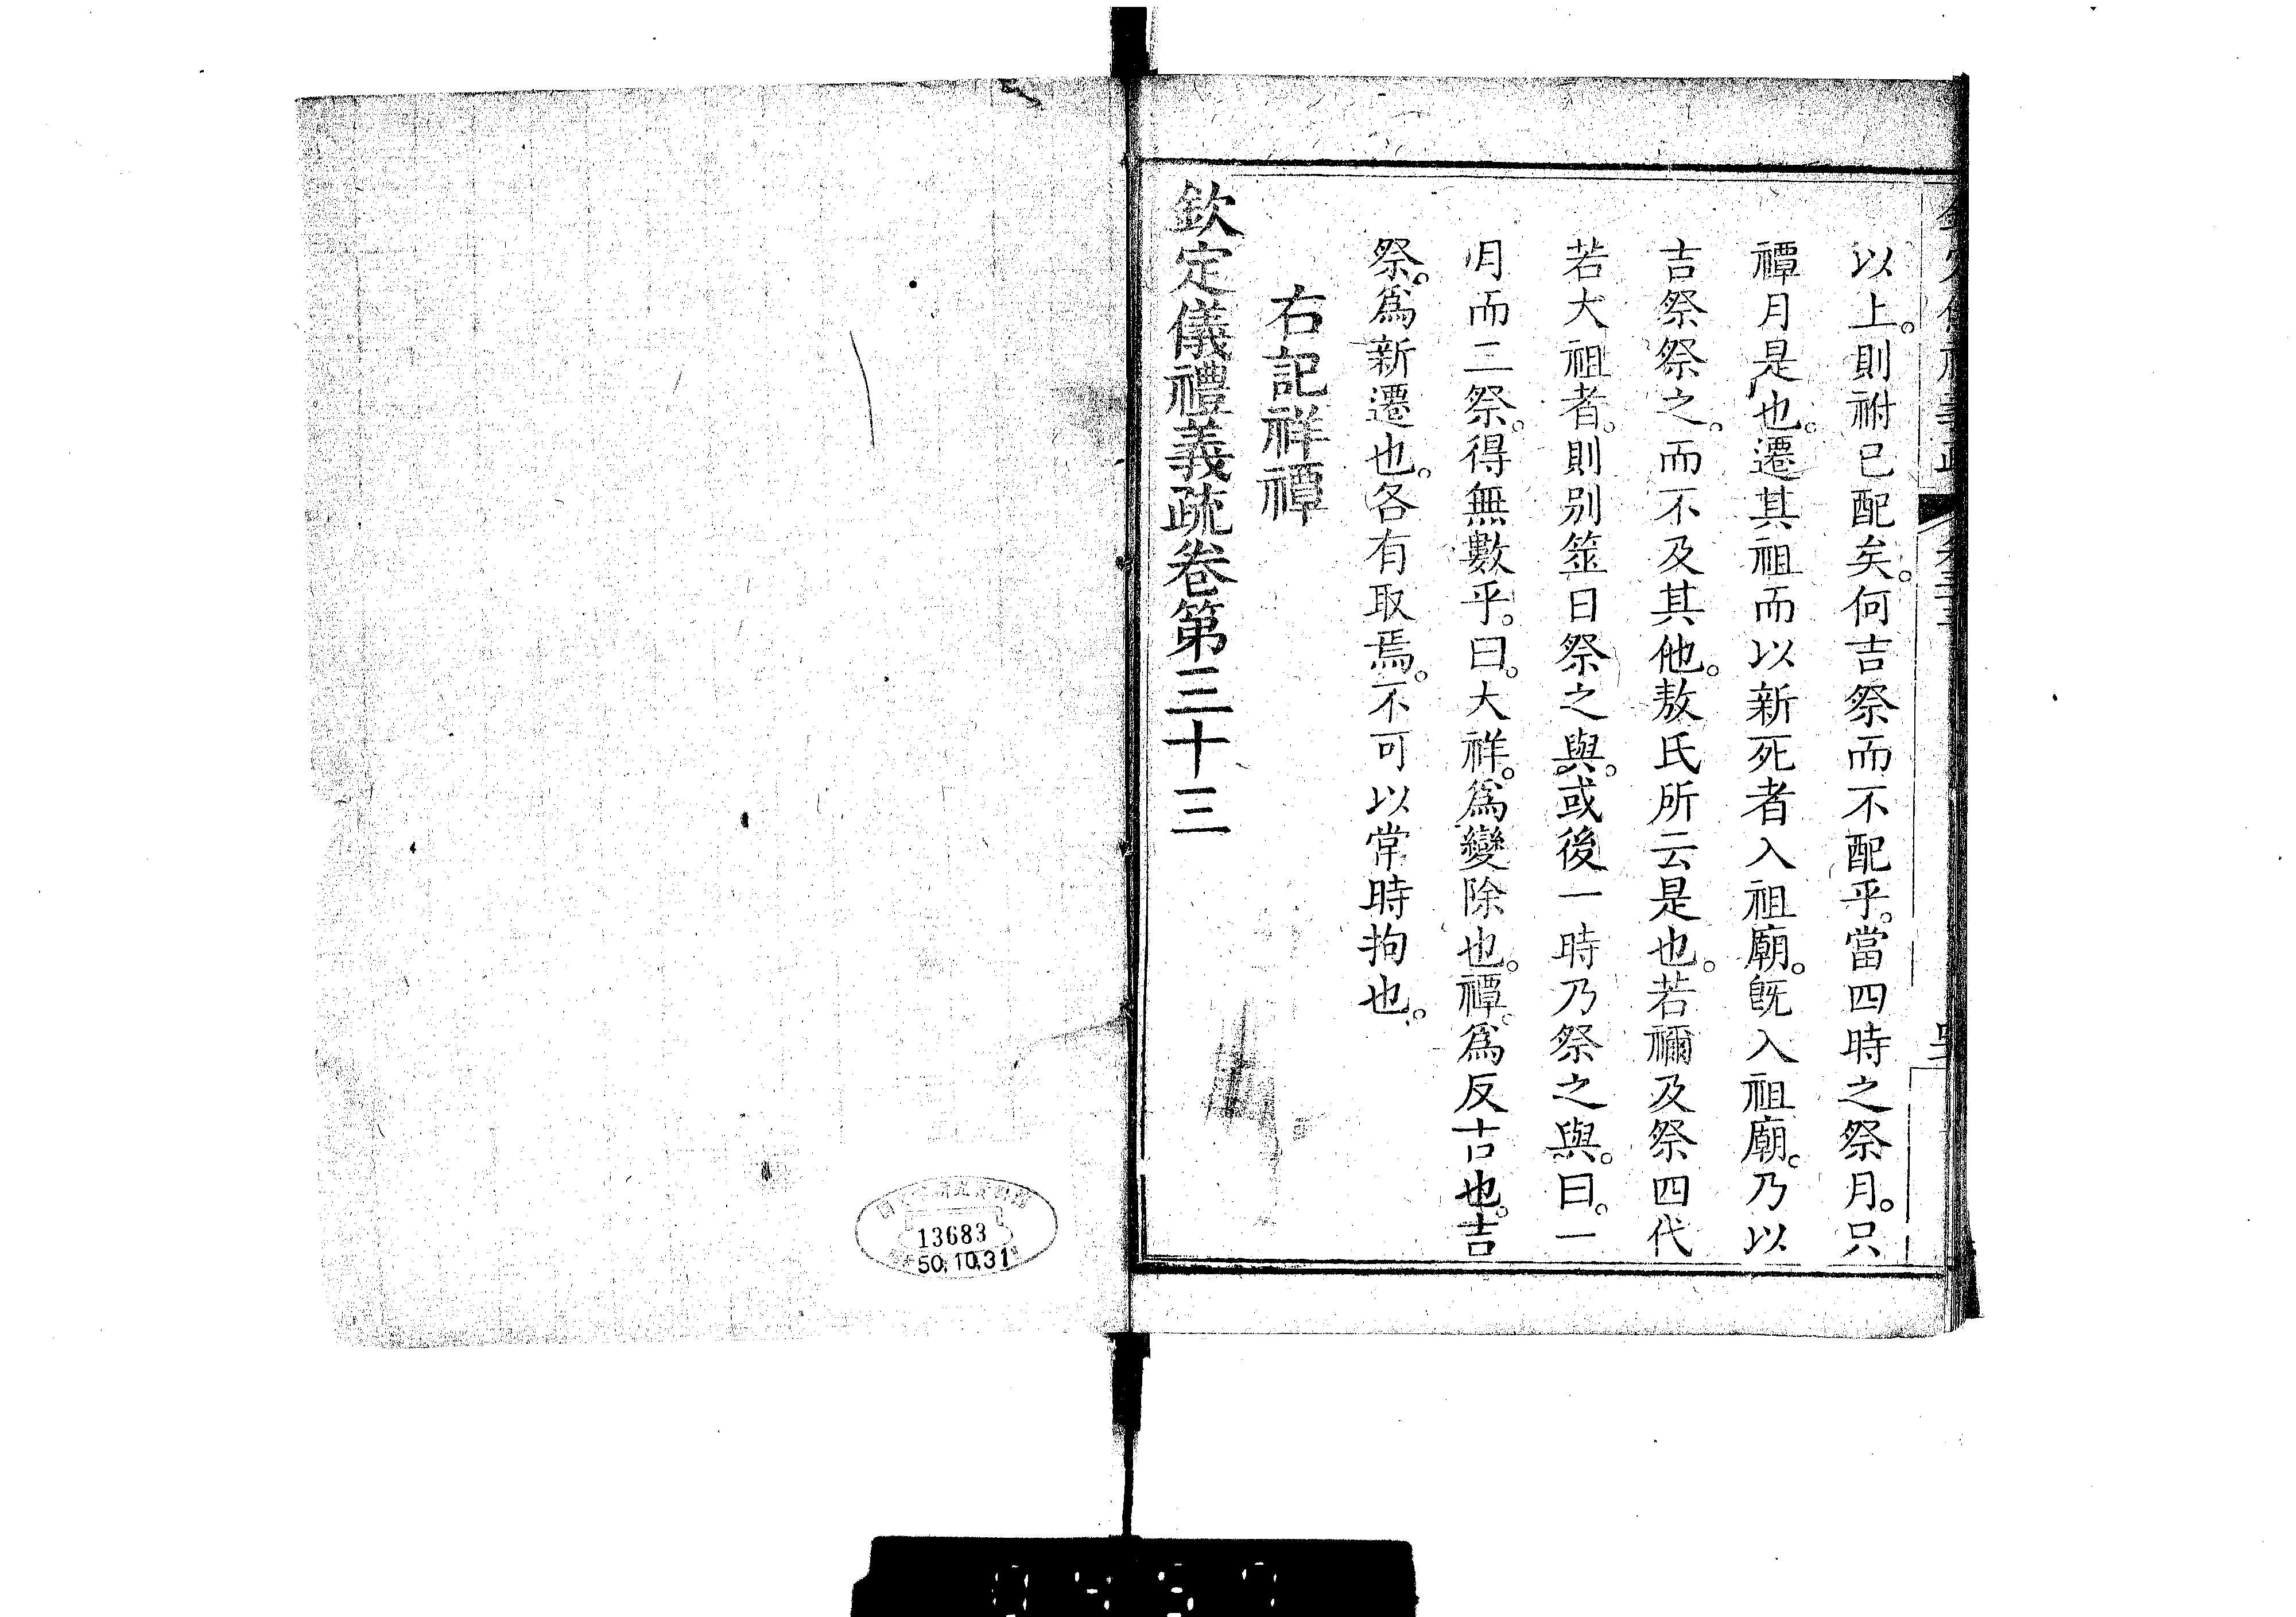 以上。則祔已配矣。何吉祭而不配乎。當四時之祭月。只
禫月是也。遷其祖而以新死者入祖廟。旣入祖廟。乃以
吉祭祭之。而不及其他。敖氏所云是也。若禰及祭四代
若大祖者。則別筮日祭之與。或後一時乃祭之與。曰。一
月而二祭。得無數乎。曰。大祥。爲變除也。禫。爲反吉也。吉
祭。爲新遷也。各有取焉。不可以常時拘也。
右記祥禫
欽定儀禮義疏卷第三十三
13683
50.10.31